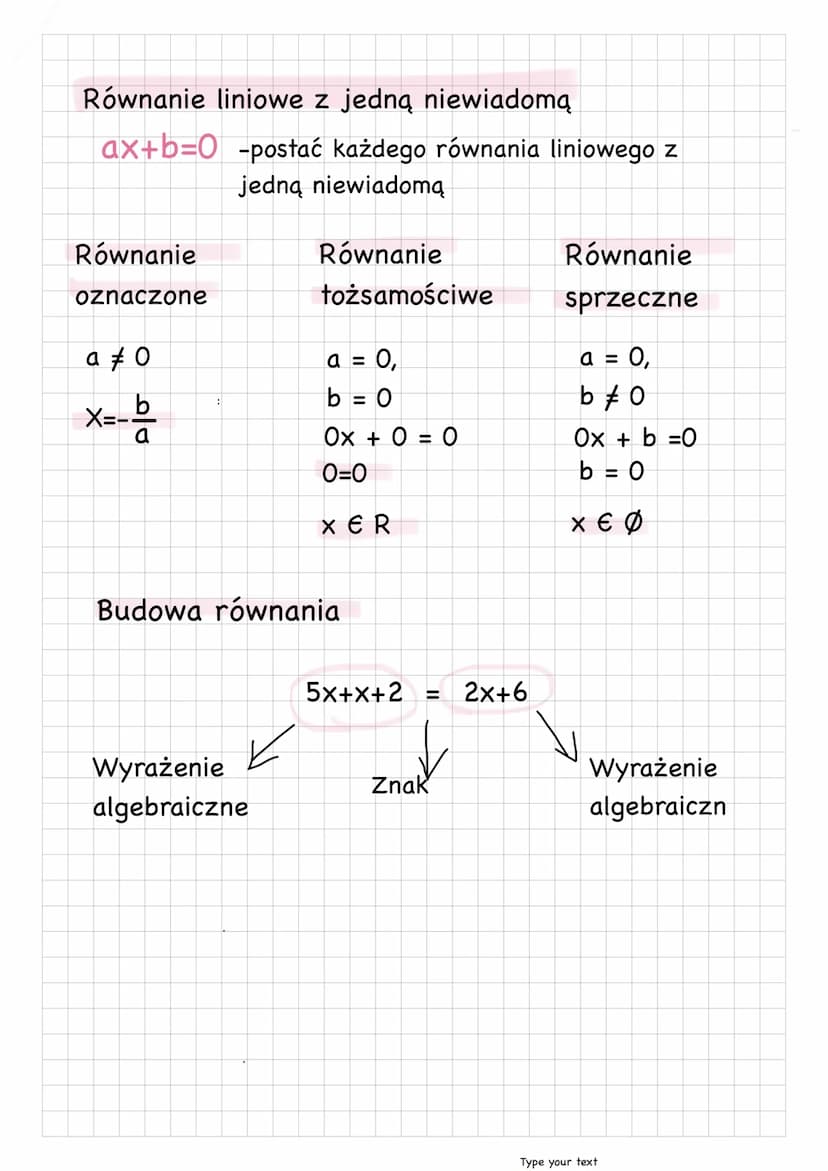 Równanie liniowe z jedną niewiadomą
ax+b=0 -postać każdego równania liniowego z
jedną niewiadomą
Równanie
oznaczone
a ≠ 0
X=-b/a
Równanie
tożsamościwe
a = 0,
b = 0
0x + 0 = 0
0=0
x ∈ R
Równanie
sprzeczne
a = 0,
b ≠ 0
0x + b =0
b = 0
x ∈ Ø
Budowa równania
5x+x+2 = 2x+6
Wyrażenie
algebraiczne
Znak
Wyrażenie
algebraiczn
Type your text